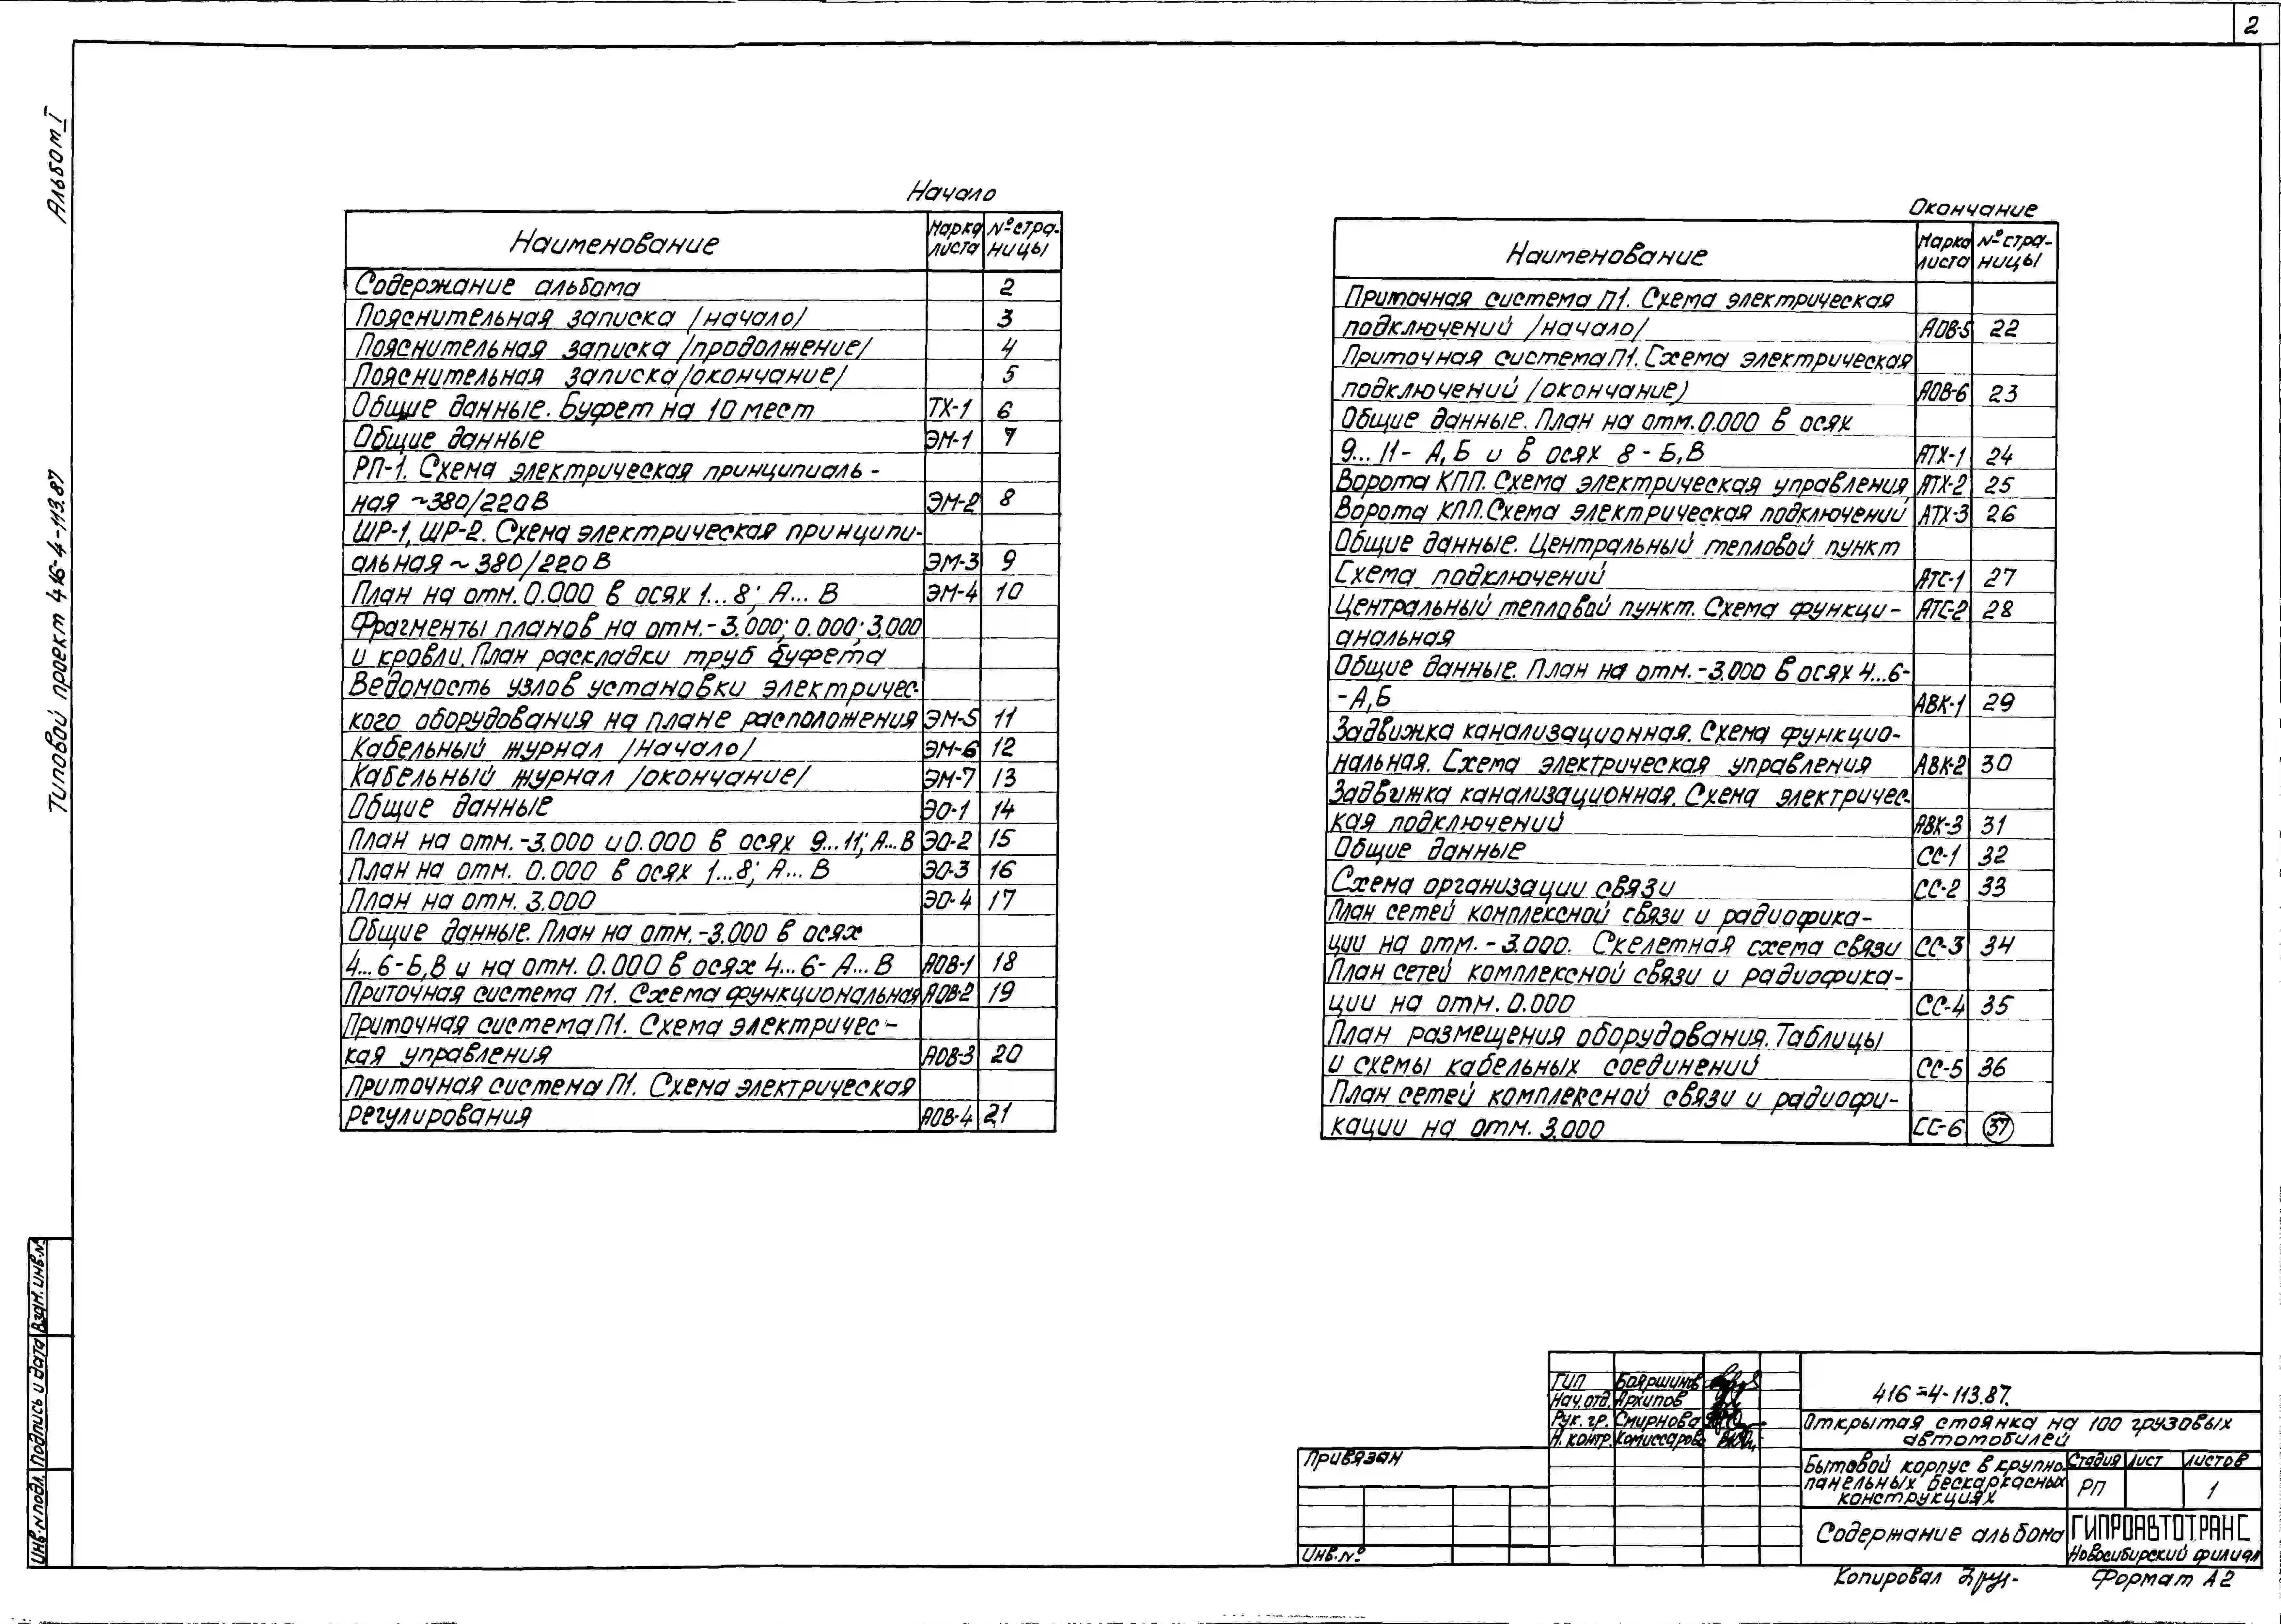 2
Альбом I
Типовой проект 416-4-113.87
Начало
Наименование Марка листа № страницы
Содержание альбома 2
Пояснительная записка /начало/ 3
Пояснительная записка /продолжение/ 4
Пояснительная записка /окончание/ 5
Общие данные. Буфет на 10 мест ТХ-1 6
Общие данные ЭМ-1 7
РП-1. Схема электрическая принципиаль-
ная ~380/220В ЭМ-2 8
ШР-1, ШР-2. Схема электрическая принципи-
альная ~ 380/220 В ЭМ-3 9
План на отм. 0.000 в осях 1...8; А... В ЭМ-4 10
Фрагменты планов на отм.-3.000; 0.000; 3.000
и кровли. План раскладки труб буфета
Ведомость узлов установки электричес-
кого оборудования на плане расположения ЭМ-5 11
Кабельный журнал /начало/ ЭМ-6 12
Кабельный журнал /окончание/ ЭМ-7 13
Общие данные ЭО-1 14
План на отм.-3.000 и 0.000 в осях 9...11; А...В ЭО-2 15
План на отм. 0.000 в осях 1...8; А... В ЭО-3 16
План на отм. 3.000 ЭО-4 17
Общие данные. План на отм.-3.000 в осях
4...6-Б,В и на отм. 0.000 в осях 4...6- А... В АОВ-1 18
Приточная система П1. Схема функциональная АОВ-2 19
Приточная система П1. Схема электричес-
кая управления АОВ-3 20
Приточная система П1. Схема электрическая
регулирования АОВ-4 21
Окончание
Наименование Марка листа № страницы
Приточная система П1. Схема электрическая
подключений /начало/ АОВ-5 22
Приточная система П1. Схема электрическая
подключений /окончание) АОВ-6 23
Общие данные. План на отм. 0.000 в осях
9... 11- А,Б и в осях 8 - Б,В АТХ-1 24
Ворота КПП. Схема электрическая управления АТХ-2 25
Ворота КПП. Схема электрическая подключений АТХ-3 26
Общие данные. Центральный тепловой пункт
Схема подключений АТС-1 27
Центральный тепловой пункт. Схема функци- АТС-2 28
анальная
Общие данные. План на отм. -3.000 в осях 4...6-
-А,Б АВК-1 29
Задвижка канализационная. Схема функцио-
нальная. Схема электрическая управления АВК-2 30
Задвижка канализационная. Схема электричес-
кая подключений АВК-3 31
Общие данные СС-1 32
Схема организации связи СС-2 33
План сетей комплексной связи и радиофика-
ции на отм. - 3.000. Скелетная схема связи СС-3 34
План сетей комплексной связи и радиофика-
ции на отм. 0.000 СС-4 35
План размещения оборудования. Таблицы
и схемы кабельных соединений СС-5 36
План сетей комплексной связи и радиофи-
кации на отм. 3.000 СС-6 37
Инв.№ подл. Подпись и дата Взам. инв.№
ГИП Бояршинов
Нач.отд. Архипов
Рук. гр. Смирнова
Н. контр. Комиссарова
Привязан
Инв.№
416-4-113.87.
Открытая стоянка на 100 грузовых
автомобилей
Бытовой корпус в крупно
панельных бескаркасных
конструкциях
Стадия Лист Листов
РП 1
Содержание альбома
ГИПРОАВТОТРАНС
Новосибирский филиал
Копировал
Формат А2